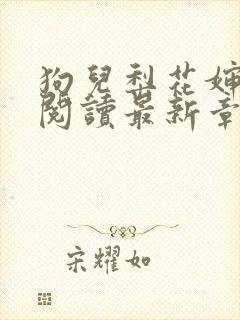 狗兒梨花嬸
閱讀最新章
宋耀如